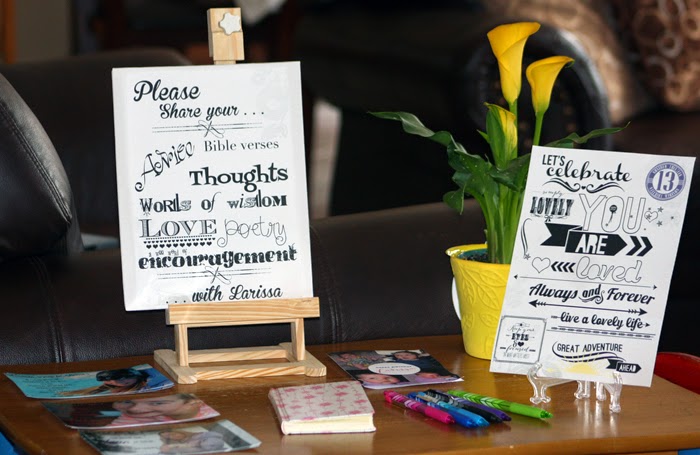 Please
Share your ...
Bible verses
Advice
Thoughts
Words of wisdom
LOVE poetry
encouragement
... with Larissa
LET'S
celebrate
13
LOVELY
YOU
ARE
loved
Always and Forever
live a lovely life
GREAT ADVENTURE
AHEAD